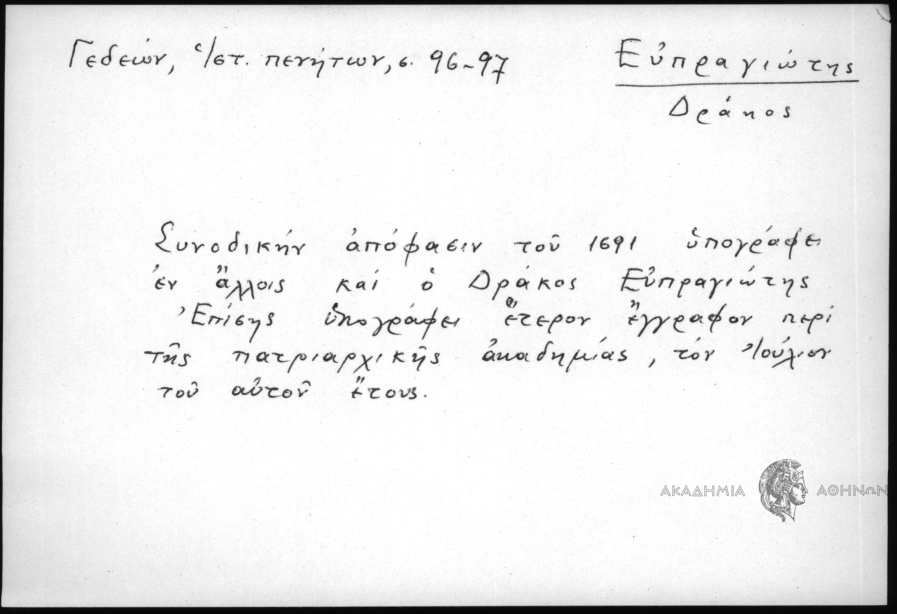 Γεδεών, Ἱστ. πενήτων, σ. 96-97
Εὐπραγιώτης
Δράκος
Συνοδικήν ἀπόφασιν τοῦ 1691 ὑπογράφει
ἐν ἄλλοις καί ὁ Δράκος Εὐπραγιώτης
Ἐπίσης ὑπογράφει ἕτερον ἔγγραφον περί
τῆς πατριαρχικῆς ἀκαδημίας, τόν Ἰούλιον
τοῦ αὐτοῦ ἔτους.
ΑΚΑΔΗΜΙΑ ΑΘΗΝΩΝ